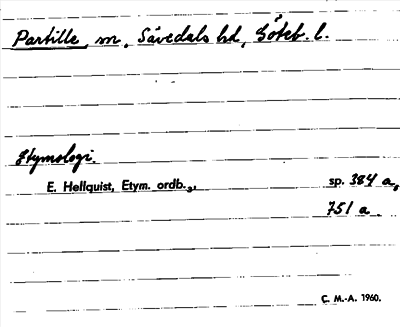 Partille, sn, Sävedals hd, Göteb. l.
Etymologi.
E. Hellquist, Etym. ordb.,
sp. 384 a,
751 a.
C. M.-A. 1960.